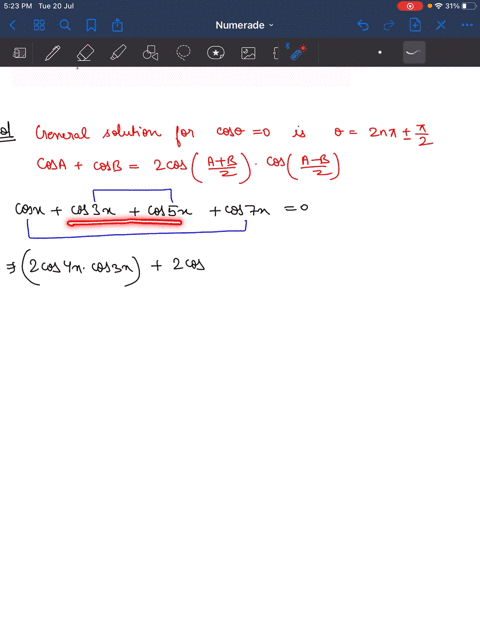 5:23 PM Tue 20 Jul 31%
Numerade
ol General solution for cosθ = 0 is θ = 2nπ ± π/2
CosA + cosB = 2cos(A+B/2) · cos(A-B/2)
cosx + cos3x + cos5x + cos7x = 0
⇒ (2cos4x · cos3x) + 2cos